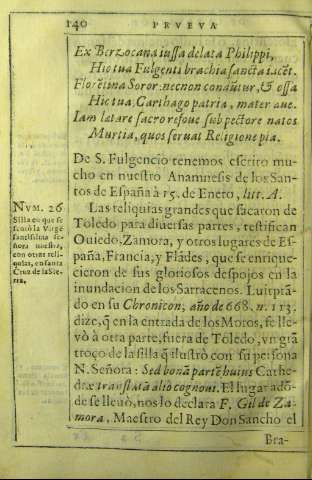 140 PRVEVA
Ex Berzocana iussa delata Philippi,
Hic tua Fulgenti brachia sancta iacēt.
Florētina Soror: necnon condūtur, & ossa
Hic tua, Carthago patria, mater aue.
Iam latare sacro refoue sub pectore natos
Murtia, quos seruat Religione pia.
De S. Fulgencio tenemos escrito mu-
cho en nuestro Anamnesis de los San-
tos de España à 15. de Enero, litt. A.
Las reliquias grandes que sacaron de
Toledo para diuersas partes, testifican
Ouiedo, Zamora, y otros lugares de Es-
paña, Francia, y Flādes, que se enrique-
cieron de sus gloriosos despojos en la
inundacion de los Sarracenos. Luitprā-
do en su Chronicon, año de 668. n. 113.
dize, q̄ en la entrada de los Moros, se lle-
vò à otra parte, fuera de Toledo, vn grā
troço de la silla q̄ ilustrò con su persona
N. Señora: Sed bonā partē huius Cathe-
dræ translatā aliò cognoui. El lugar adō-
de se lleuò, nos lo declara F. Gil de Za-
mora, Maestro del Rey Don Sancho el
Bra-
NVM. 26
Silla en que se
sentò la Virgē
santissima se-
ñora nuestra,
con otras reli-
quias, en santa
Cruz de la Sie-
rra,